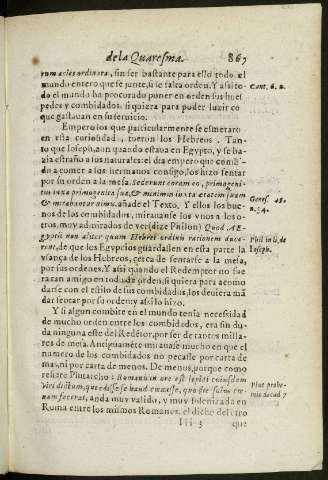 de la Quaresma. 867
rum acies ordinata, sin ser bastante para ello todo el
mundo entero que se junte, si le falta orden. Y assi to-
do el mundo ha procurado poner en orden sus hues
pedes y combidados, si quiera para poder luzir co
que gastauan en su seruicio.
Cant. 6. a.
Empero los que particularmente se esmeraro
en esta curiosidad, fueron los Hebreos. Tan-
to que Ioseph, aun quando estaua en Egypto, y se ha-
zia estraño a sus naturales: el dia empero que combi-
do a comer a los hermanos consigo, los hizo sentar
por su orden a la mesa. Sederunt coram eo, primogeni-
tus iuxa primogenita sua, & minimus iuxta ætatem suam
& mirabantur nimis, añade el Texto. Y ellos los bue-
nos de los combidados, mirauanse los vnos a los o-
tros, muy admirados de ver (dize Philon) Quod AE-
gyptii non aliter quam Hebrei ordinis rationem duce-
rent, de que los Egypcios guardassen en esta parte la
vsança de los Hebreos, cerca de sentarse a la mesa,
por sus ordenes. Y assi quando el Redemptor no fue
ra tan amigo en todo de orden, si quiera para acomo
darse con el estilo de sus combidados, los deuiera mã
dar sentar por su orden: y assi lo hizo.
Genes. 43.
n. 34.
Phil in li. de
Ioseph.
Y si algun combite en el mundo tenia necessidad
de mucho orden entre los combidados, era sin du-
da ninguna este del Redétor, por ser de tantos milla-
res de mesa. Antiguaméte mirauase mucho en que el
numero de los combidados no pecasse por carta de
mas, ni por carta de menos. De menos, porque como
refiere Plutarcho: Romani in ore est lepidi cuiusdam
viri dictum, que edisse se haud cœnasse, quo die solus cœ-
nam fecerat, anda muy valido, y muy solenizado en
Roma entre los mismos Romanos, el dicho del otro
Plut probe-
mio decad 7
Iii 3 que